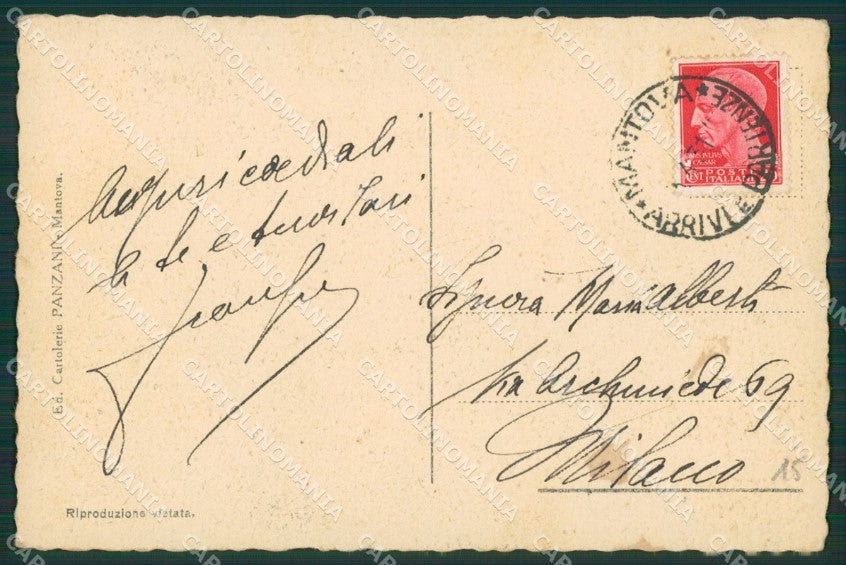 Auguri cordiali
a te e tuoi cari
Ed. Cartolerie PANZANINI Mantova.
Riproduzione vietata.
MANTOVA ★ ARRIVI E PARTENZE ★
POSTE
ITALIANE
Signora Maria Alberti
Via Archimede 69
Milano
15
CARTOLINOMANIA